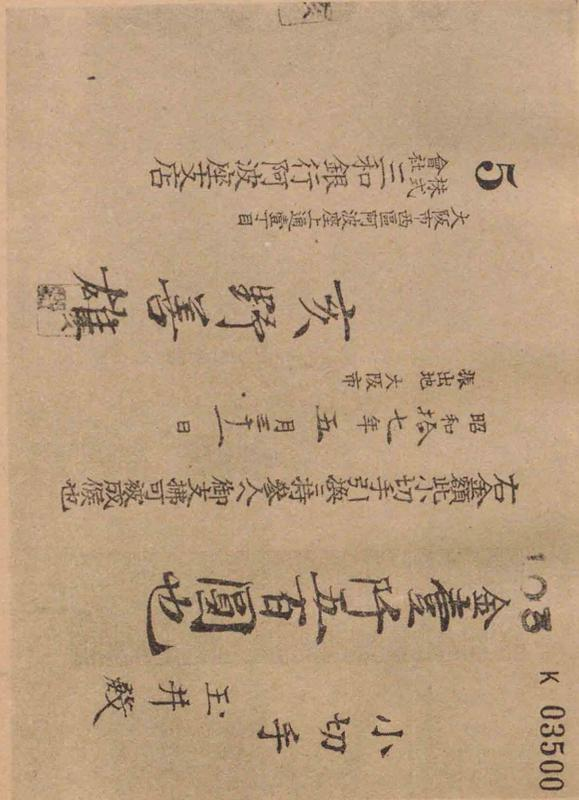 K 03500
小切手
玉井殿
金壹阡五百圓也
右金額此小切手引換ニ持參人ヘ御支拂可被成候也
昭和拾七年五月三十一日
振出地 大阪市
亥野善雄
大阪市西區阿波座上通壹丁目
株式會社三和銀行阿波座支店
5